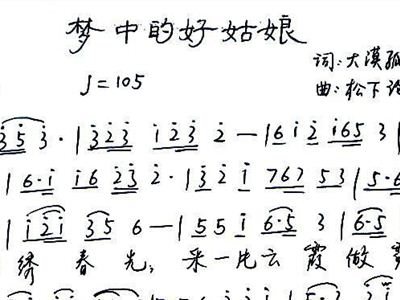 梦中的好姑娘
词:大漠孤
♩=105
曲:松下
3 5 3 · | 3 2 3 1 2 3 2 — | 6 1 2 1 6 5 3 |
| 6 · 1 1 6 2 3 2 · | 3 2 1 7 6 7 5 3 | 5 · 6
| 1 2 1 3 5 6 — | 5 5 1 6 · 5 3 | 6 · 5
绣 春 光, 采 一 片 云 霞 做